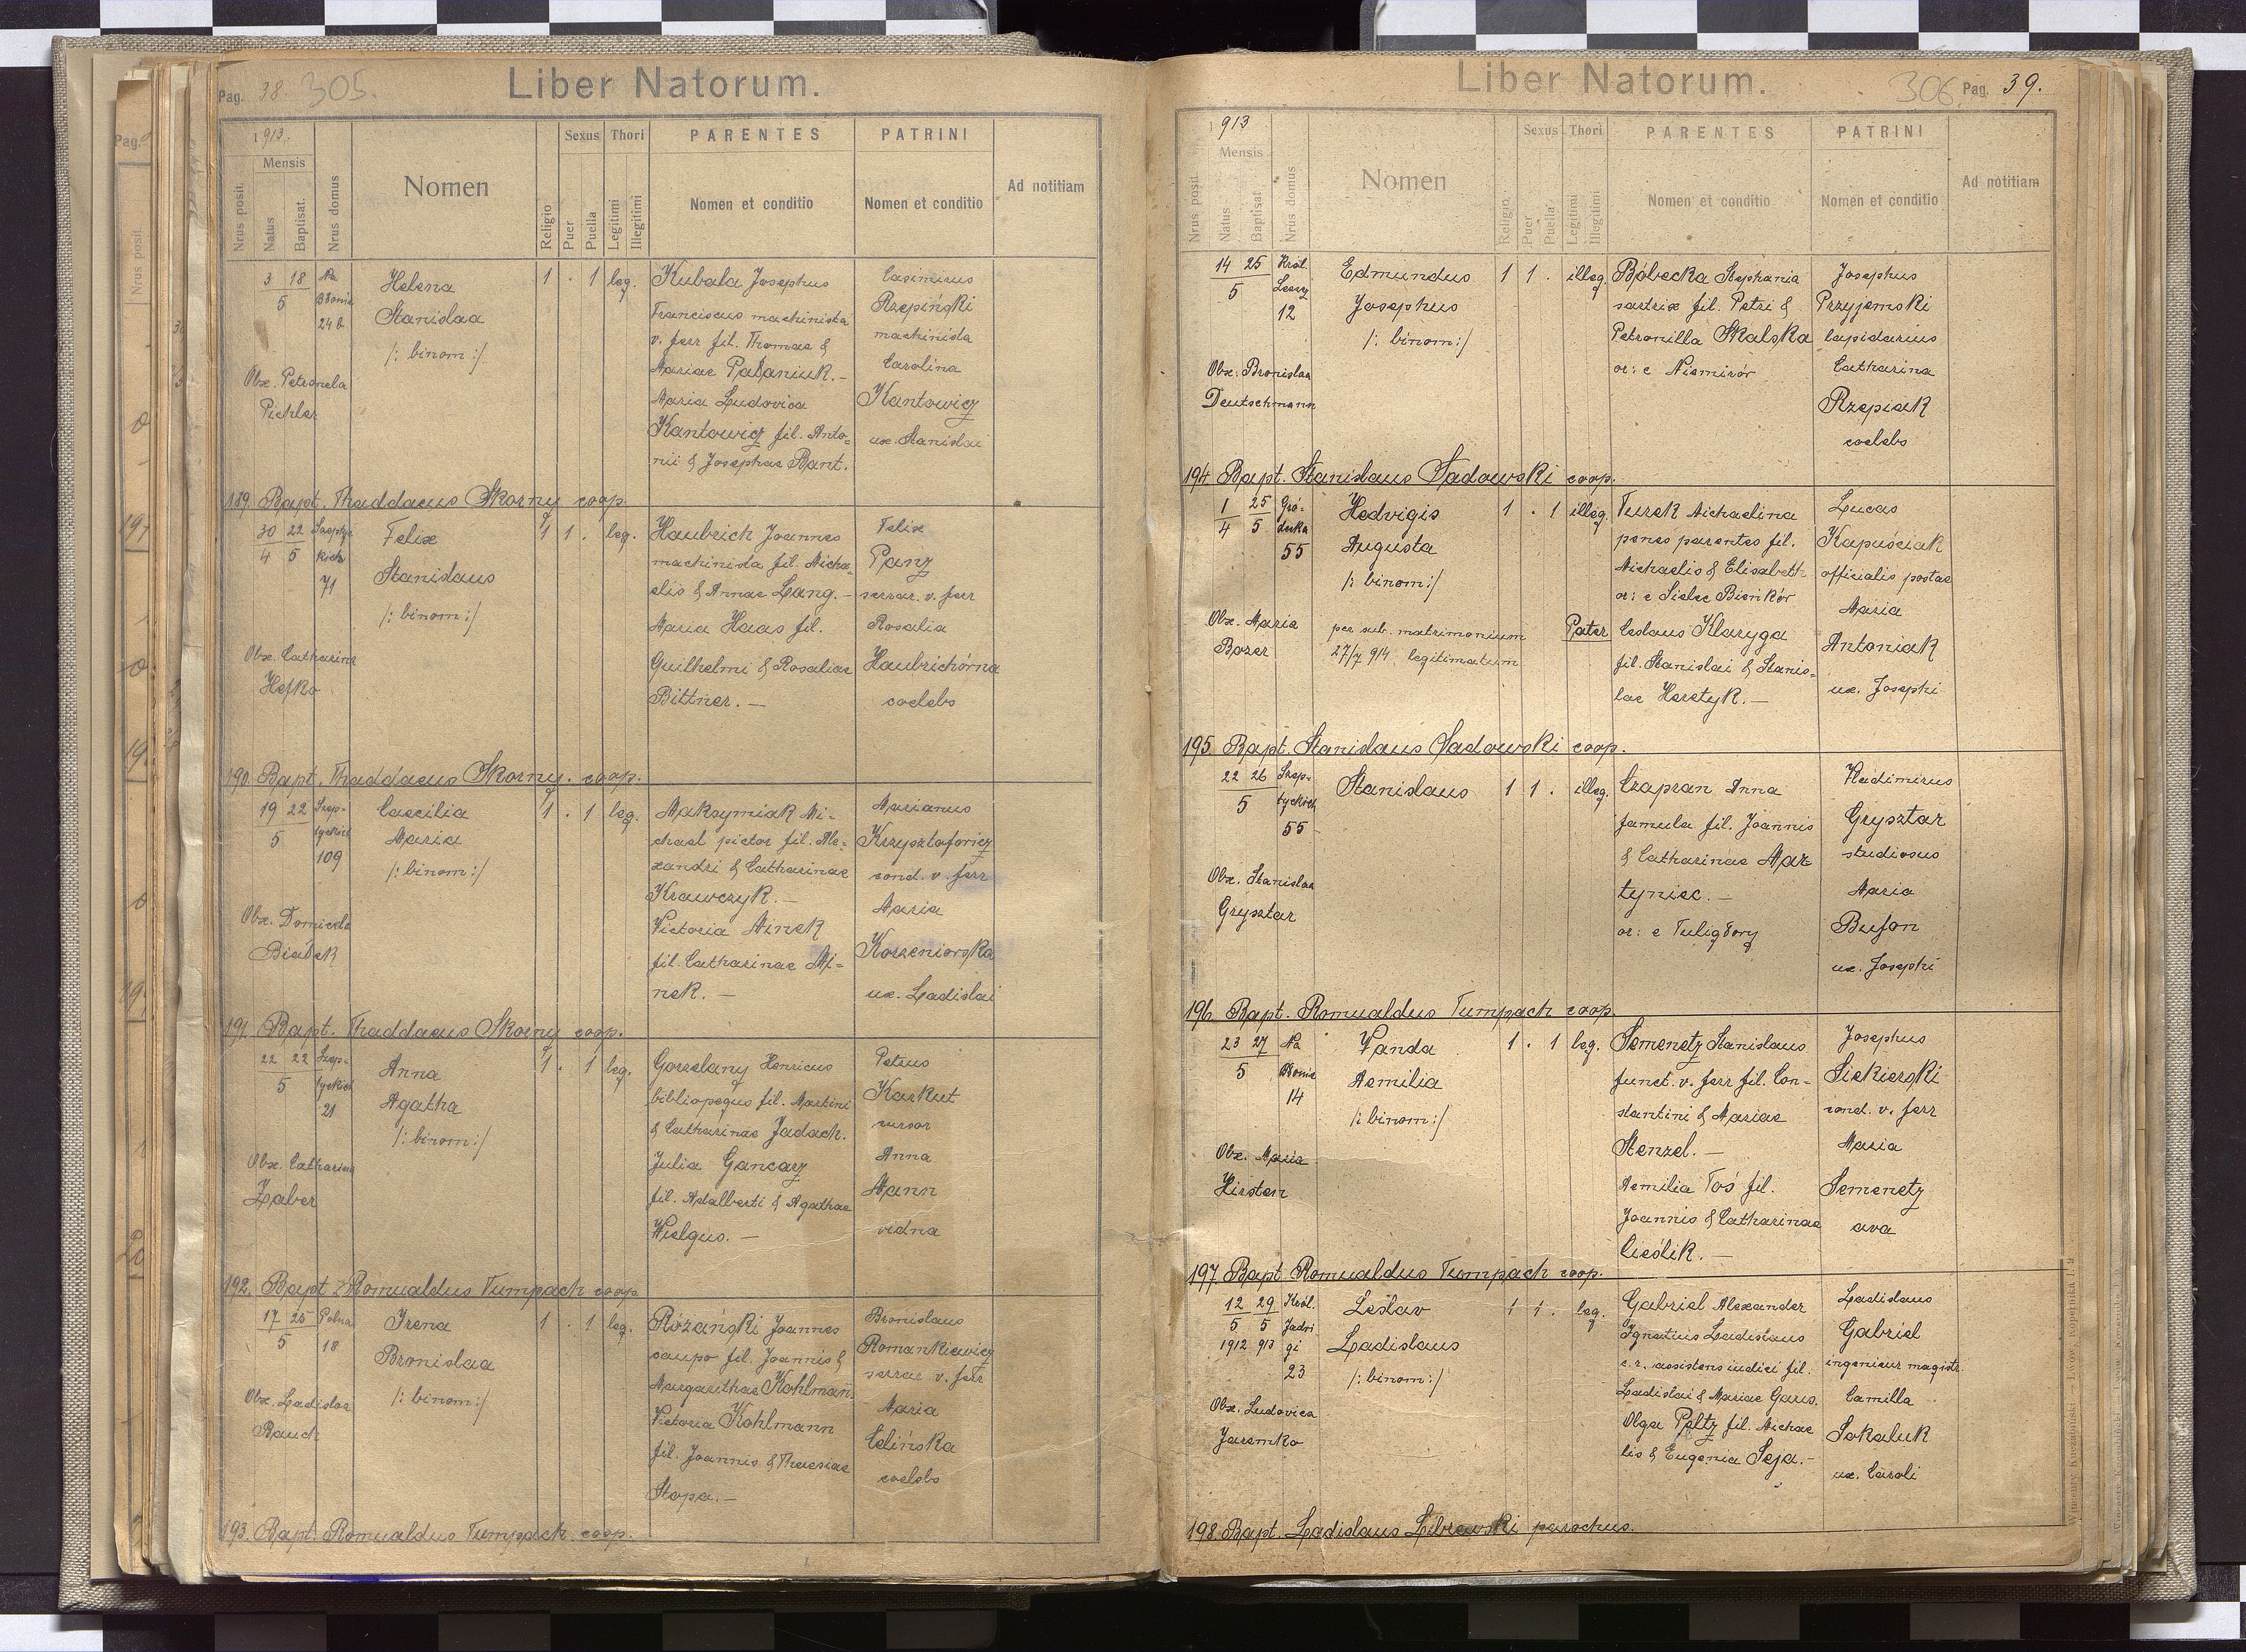 Pag. 38. 305. Liber Natorum.
1913.
Nrus posit.
Mensis
Natus
Baptisat.
Nrus domus
Nomen
Religio
Sexus
Puer
Puella
Thori
Legitimi
Illegitimi
PARENTES
Nomen et conditio
PATRINI
Nomen et conditio
Ad notitiam
3 18 Na
5 Błonie
24 b
Helena
Stanislaa
/: binom :/
1 . 1 leg.
Obx. Petronela
Pichler
Kubala Josephus
Franciscus machinista
v. ferr fil. Thomae &
Mariae Pałaniuk. –
Maria Ludovica
Kantowicz fil. Anto=
nii & Josephae Bant.
Casimirus
Rzepiński
machinista
Carolina
Kantowicz
ux. Stanislai
189. Bapt. Thaddaeus Skorny coop.
30 22
4 5
71
Felix
Stanislaus
/: binom :/
1 1 . leg.
Obx. Catharina
Hefko
Haubrich Joannes
machinista fil. Micha=
elis & Annae Lang. –
Maria Haas fil.
Guilhelmi & Rosaliae
Bittner. –
Felix
Panz
serrar. v. ferr
Rosalia
Haubrichórna
coelebs
190. Bapt. Thaddaeus Skorny. coop.
19 22 Szep-
5 tyckich
109
Caecilia
Maria
/: binom :/
1 . 1 leg.
Obx. Domicela
Białek
Maksymiak Mi-
chael pictor fil. Ale=
xandri & Catharinae
Krawczyk. –
Victoria Minek
fil. Catharinae Mi=
nek. –
Marianus
Krzysztoforicz
cond. v. ferr
Maria
Korzeniorska
ux. Ladislai
191. Bapt. Thaddaeus Skorny coop.
22 22 Szep=
5 tyckich
21
Anna
Agatha
/: binom :/
1 . 1 leg.
Obx. Catharina
Zaber
Gorzelany Henricus
bibliopegus fil. Martini
& Catharinae Jadach.
Julia Gancarz
fil. Adalberti & Agathae
Wielgus. –
Petrus
Karkut
cursor
Anna
Mann
vidna
192. Bapt Romualdus Tumpach coop.
17 25 Polna
5 18
Irena
Bronislaa
/: binom :/
1 . 1 leg.
Obx. Ladislaa
Bauch
Różański Joannes
caupo fil. Joannis &
Margarithae Kohlmann.
Victoria Kohlmann
fil. Joannis & Theresiae
Stopa. –
Bronislaus
Romankiewicz
serrar v. ferr
Maria
Celińska
coelebs
193. Bapt. Romualdus Tumpach. coop.
Liber Natorum. 306. Pag. 39.
1913
Nrus posit
Mensis
Natus
Baptisat.
Nrus domus
Nomen
Religio
Sexus
Puer
Puella
Thori
Legitimi
Illegitimi
PARENTES
Nomen et conditio
PATRINI
Nomen et conditio
Ad notitiam
14 25 Król.
5 Leszcz
12
Edmundus
Josephus
/: binom :/
1 1 . illeg.
Obx. Bronislaa
Deutschmann
Bóbecka Stephania
sartrix fil. Petri &
Petronilla Skalska
or: e Niemirór
Josephus
Przyjemski
lapidarius
Catharina
Rzepiak
coelebs
194. Bapt. Stanislaus Sadowski coop.
1 25 Gró-
4 5 decka
55
Hedvigis
Augusta
/: binom :/
1 . 1 illeg.
Obx. Maria
Bozer
per sub. matrimonium
27/7 914 legitimatum
Turek Michaelina
penes parentes fil.
Michaelis & Elisabeth
or: e Sielec Bieńków
Pater Ceslaus Klaryga
fil. Stanislai & Stanis=
lae Heretyk. –
Lucas
Kapuściak
officialis postae
Maria
Antoniak
ux. Josephi
195. Bapt. Stanislaus Sadowski coop.
22 26 Szep-
5 tyckich
55
Stanislaus
1 1 . illeg.
Obx. Stanislaa
Grysztar
Czapran Anna
famula fil. Joannis
& Catharinae Mar
tyniec. –
or: e Tuligłowy
Vladimirus
Grysztar
studiosus
Maria
Bufon
ux. Josephi
196. Bapt. Romualdus Tumpach coop.
23 27 Na
5 Błonie
14
Vanda
Aemilia
/: binom :/
1 . 1 leg.
Obx. Maria
Hirsten
Semenetz Stanislaus
funct. v. ferr fil. Con-
stantini & Mariae
Stenzel. –
Aemilia Toś fil.
Joannis & Catharinae
Cieślik. –
Josephus
Siekierski
cond. v. ferr
Maria
Semenetz
ava
197. Bapt. Romualdus Tumpach coop.
12 29 Król.
5 5 Jadri
1912 913 gi
23
Lesław
Ladislaus
/: binom :/
1 1 . leg.
Obx. Ludovica
Jaremko
Gabriel Alexander
Ignatius Ladislaus
c. r. assistens iudici fil.
Ladislai & Mariae Garus.
Olga Peltz fil. Michae
lis & Eugenia Seja. –
Ladislaus
Gabriel
ingenieur magistr.
Camilla
Sokaluk
ux. Caroli
198. Bapt. Ladislaus Librewski parochus.